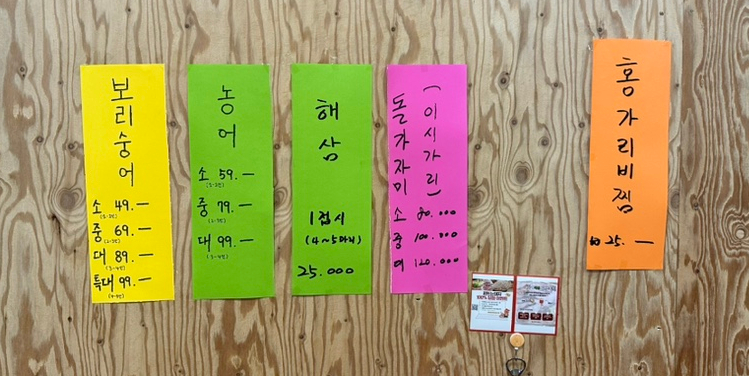 보리숭어
소 49.—
중 69.—
(2~3인)
대 89.—
(3~4인)
특대 99.—
농어
소 59.—
(2~3인)
중 79.—
(2~3인)
대 99.—
(3~4인)
해삼
1접시
(4~5마리)
25.000
돌가자미
(이시가리)
소 80.000
중 100.000
대 120.000
홍가리비찜
25.—